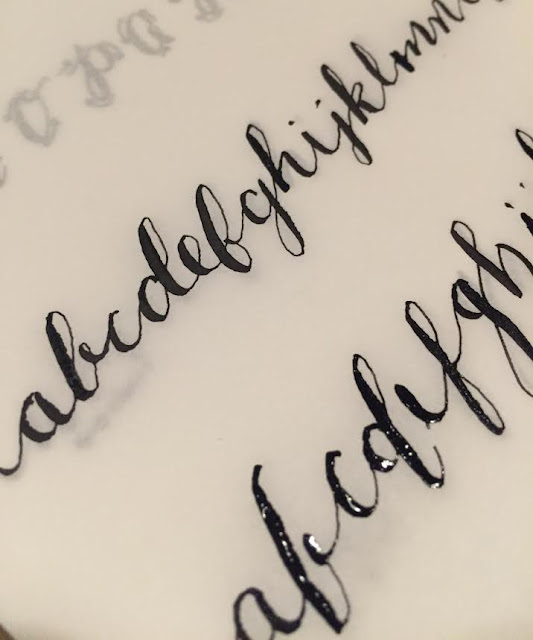 abcdefghijklmn
abcdefghij